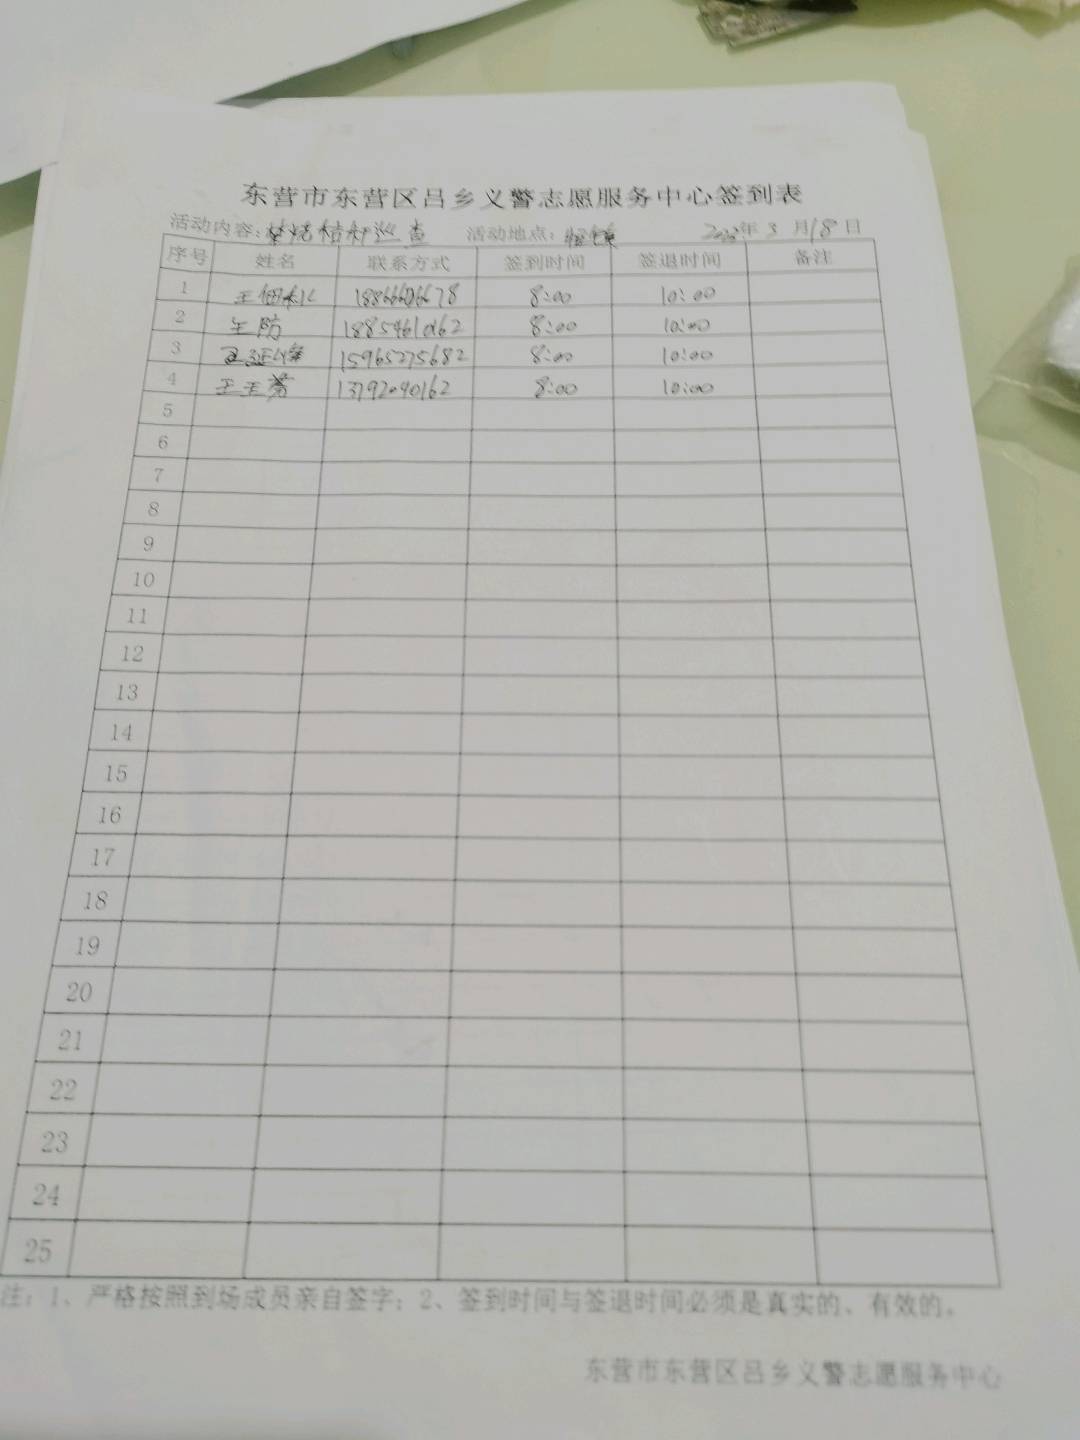 东营市东营区吕乡义警志愿服务中心签到表
活动内容：焚烧秸秆巡查 活动地点： 年 3 月 18 日
序号 姓名 联系方式 签到时间 签退时间 备注
1 8:00 10:00
2 王防 18854610162 8:00 10:00
3 15965275682 8:00 10:00
4 13792090162 8:00 10:00
5
6
7
8
9
10
11
12
13
14
15
16
17
18
19
20
21
22
23
24
25
注：1、严格按照到场成员亲自签字；2、签到时间与签退时间必须是真实的、有效的。
东营市东营区吕乡义警志愿服务中心